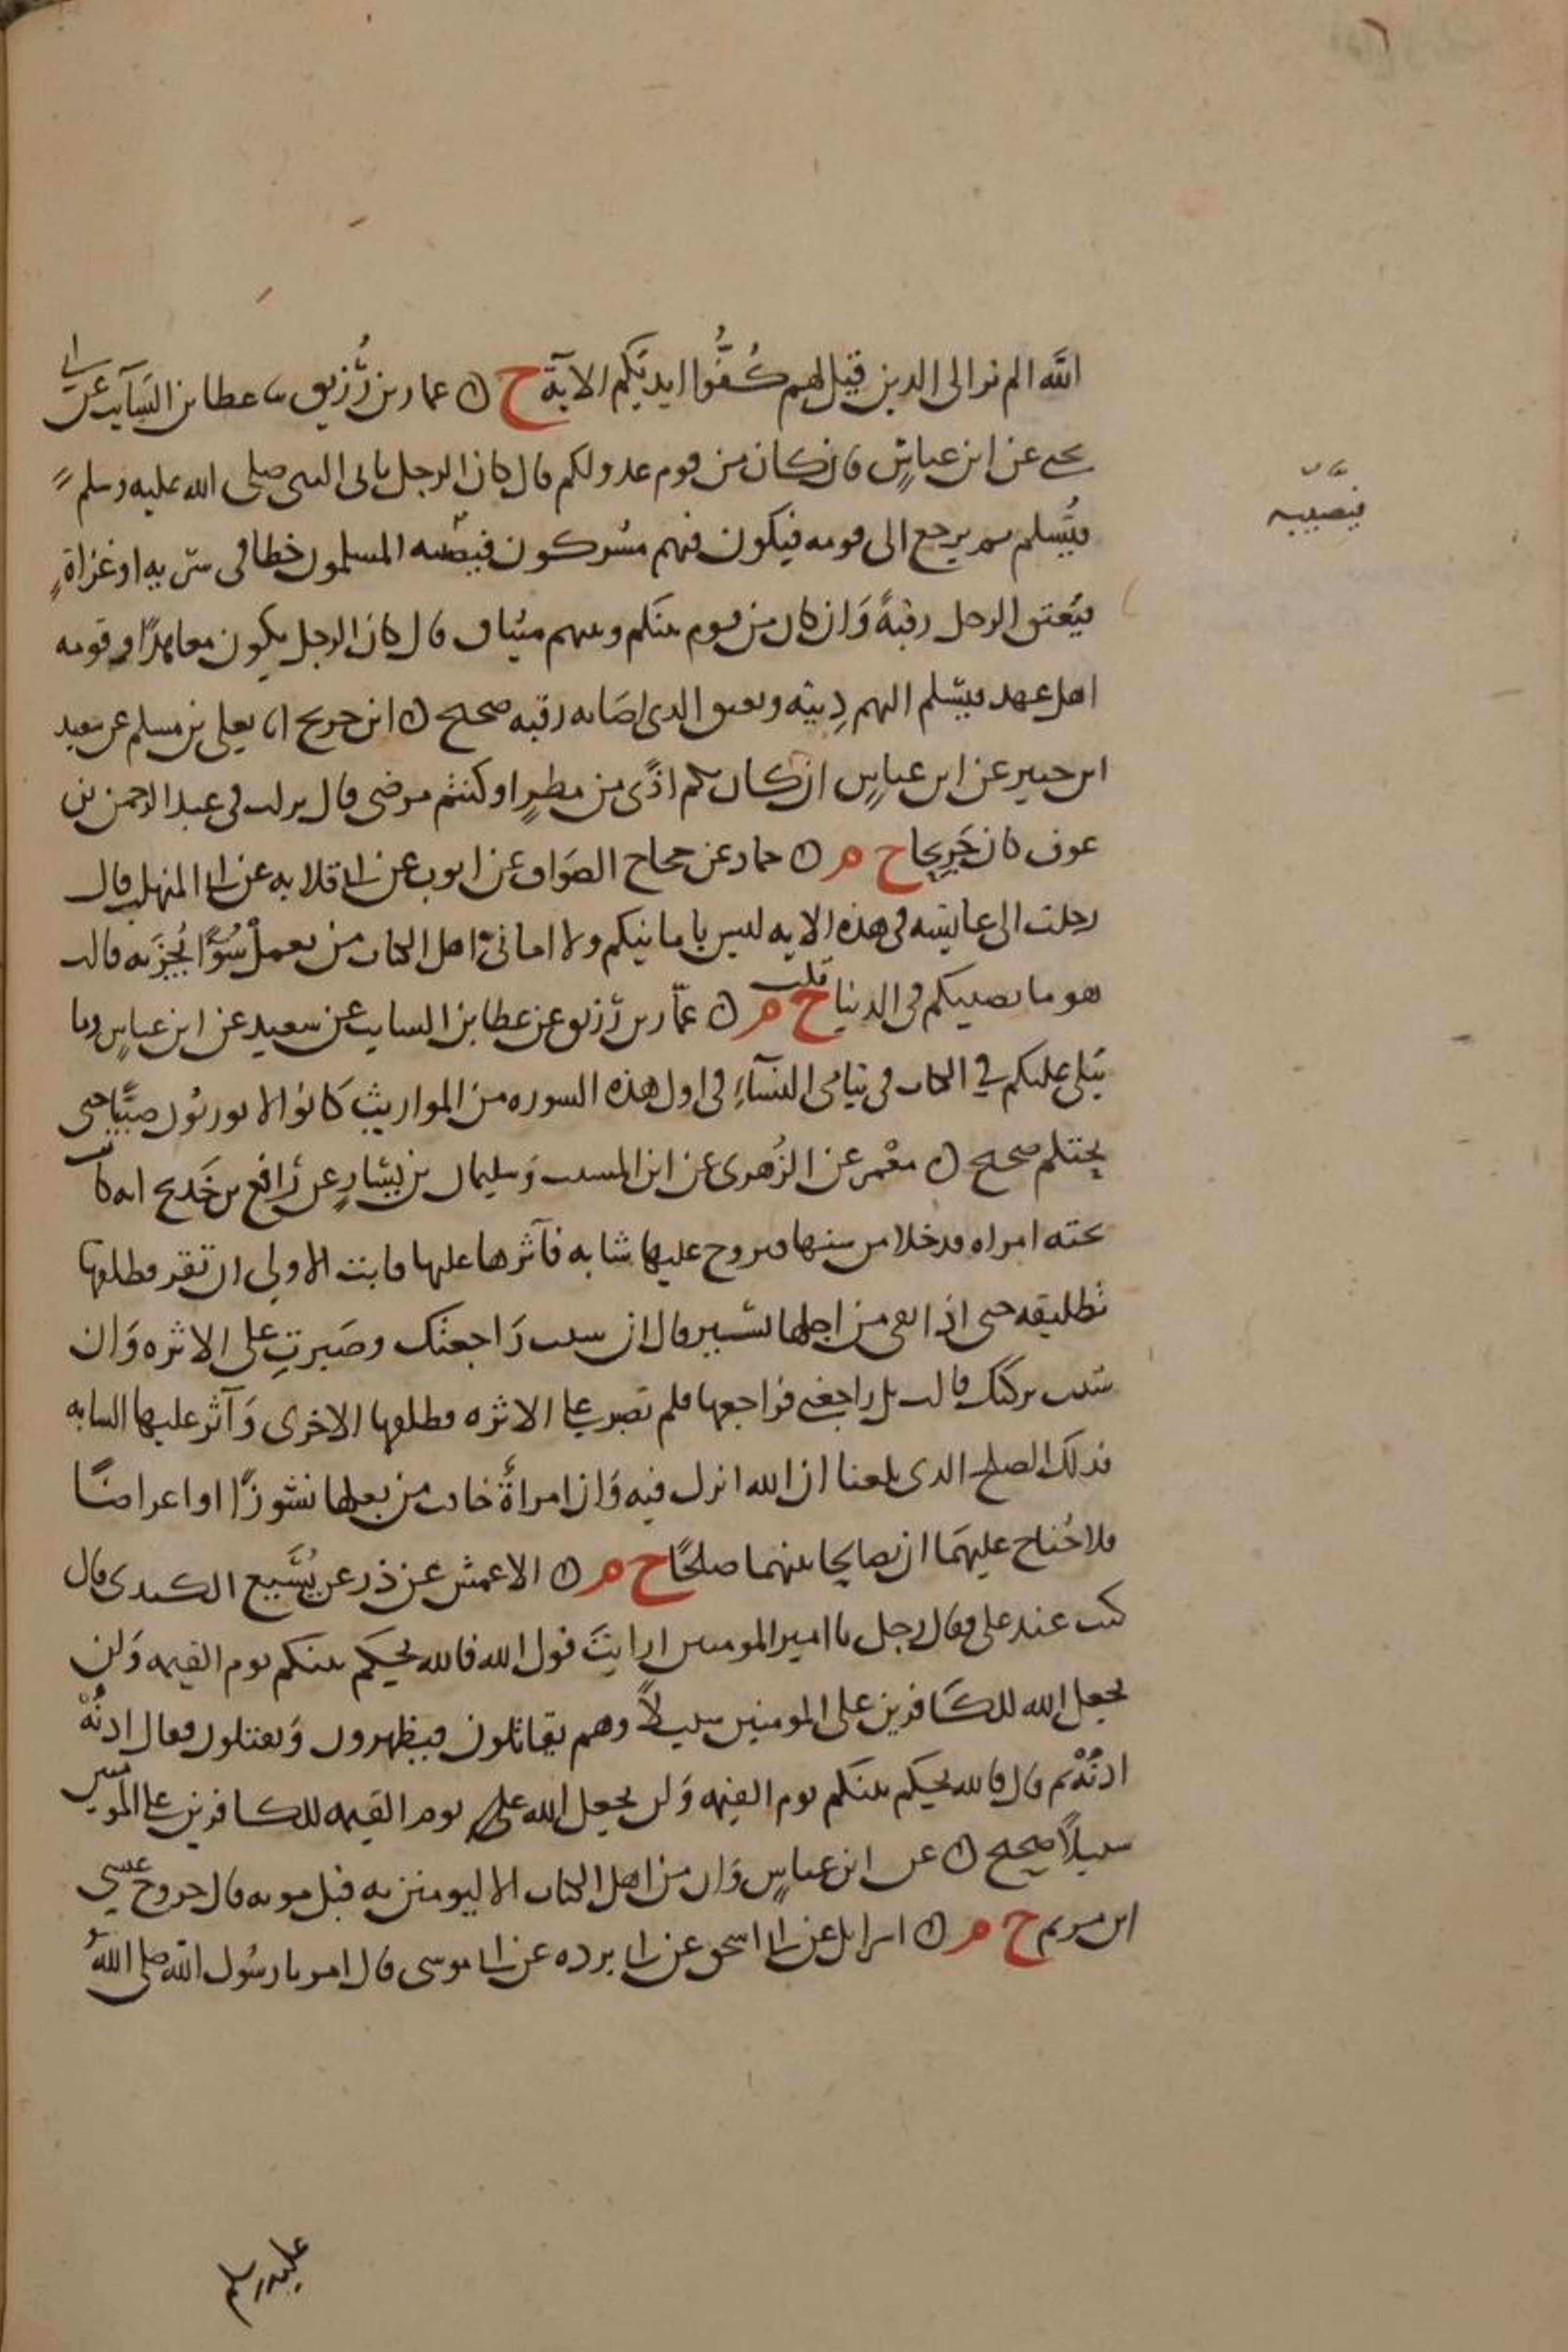 الله الم تر الى الذين قيل لهم كُفُّوا ايديَكم الآية خ ن عمار بن رُزيق نا عطا بن السَّايب عن ابي
يحيى عن ابن عباسٍ فان كان من قوم عدو لكم قال كان الرجل ياتي النبي صلى الله عليه وسلم
فيُسلم ثم يرجع الى قومه فيكون فيهم مشركون فيصيبه المسلمون خطا في سرّيه او غزاةٍ
فيُعتق الرجل رقبةً وَان كان من قوم بينَكم وبينهم ميثاق قال كان الرجل يكون معاهدًا وقومه
اهل عهد فيسّلم اليهم دِيته ويعتق الذي اصَابه رقبه صحيح ن ابن جريج انا يعلى بن مسلم عن سعيد
ابن جبير عن ابن عباسٍ ان كان بكم اذًى من مطرٍ او كنتم مرضى قال نزلت في عبد الرحمن بن
عوف كان جَرِيحا خ م ن حماد عن حجاج الصَواف عن ايوب عن ابي قلابه عن ابي المهلب قال
رحلت الى عايشه في هذه الايه ليس بامانيكم ولا اماني اهل الكتاب من يعملْ سُوًا يُجزَ به قالت
هو ما يصيبكم في الدنيا قلت خ م ن عمّار بن رُزيق عن عطا بن السايب عن سعيد عن ابن عباسٍ وما
يُتلى عليكم في الكتاب في يتامى النسَآءِ في اول هذه السوره من المواريث كَانوا لا يورثون صبيًّا حتى
يحتلم صحيح ن معْمر عن الزُهرى عن ابن المسيب وَسليمان بن يسَارٍ عن رَافع بن خَديج انه كانت
تحته امراه قد خلا من سنها فتزوج عليها شابه فآثرها عليها فابت الاولى ان تقر فطلقها
تطليقه حتى اذا بقى من اجلها يسير قال ان شيت رَاجعتك وصَبرتِ على الاثره وَان
شيت تركتك قالت بل راجِعْني فراجعها فلم تصبر على الاثره فطلقها الاخرى وَآثر عليها الشابه
فذلك الصلح الذي بلغنا ان الله انزل فيه وَان امراةٌ خافت من بعلها نشوزًا او اعراضًا
فلا جُناح عليهمَا ان يصالحا بينهما صلحًا خ م ن الاعمش عن ذر عن يُسَيع الكندى قال
كنت عند على فقال رجل يا امير المومنين ارايتَ قول الله فالله يحكم بينكم يوم القيمه وَلن
يجعل الله للكَافرين على المومنين سبيلًا وهم يقاتلون فيظهرون وَيقتلون فقال ادنُهْ
ادنُهْ ثم قال فالله يحكم بينكم يوم القيمه وَلن يجعل الله على يوم القيمه للكافرين على المومنين
سبيلًا صحيح ن عن ابن عباسٍ وَان من اهل الكتاب الا ليومنن به قبل موته قال خروج عيسى
ابن مريم خ م ن اسرايل عن ابي اسحق عن ابي برده عن ابي موسى قال امرنا رسُول الله صلى اللهُ
فيصيبه
عليه وسلم